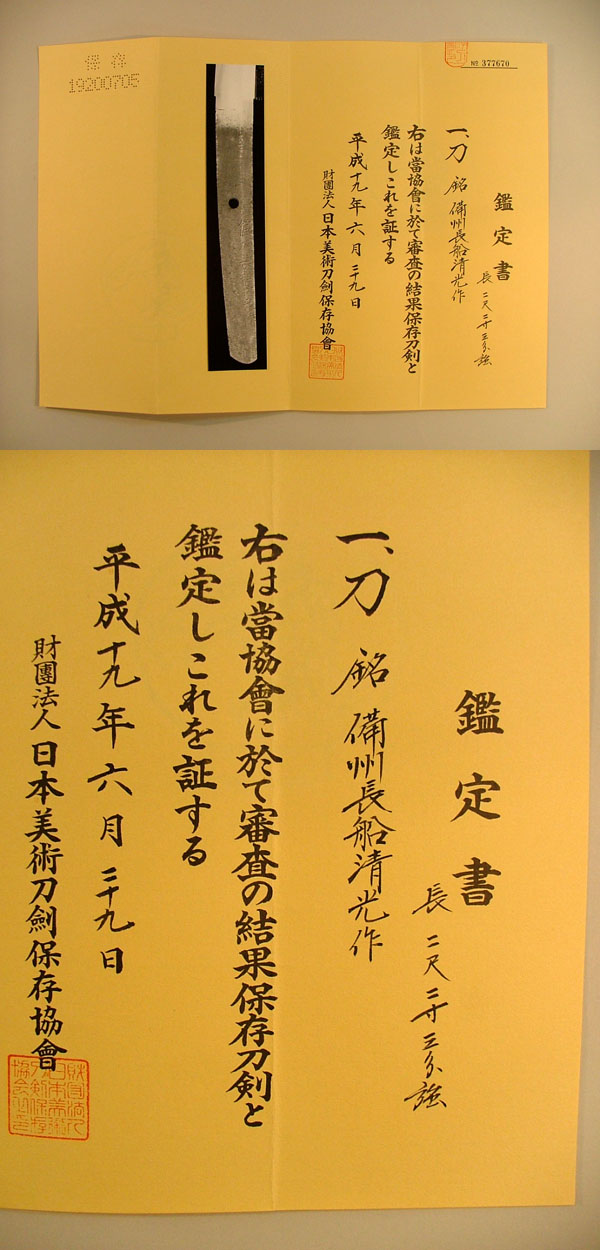 保存
19200705
№ 377670
鑑定書
長 二尺二寸三分強
一、刀 銘 備州長船清光作
右は當協會に於て審査の結果保存刀剣と
鑑定しこれを証する
平成十九年六月二十九日
財團法人日本美術刀劍保存協會
鑑定書
長 二尺二寸三分強
一、刀 銘 備州長船清光作
右は當協會に於て審査の結果保存刀剣と
鑑定しこれを証する
平成十九年六月二十九日
財團法人日本美術刀劍保存協會